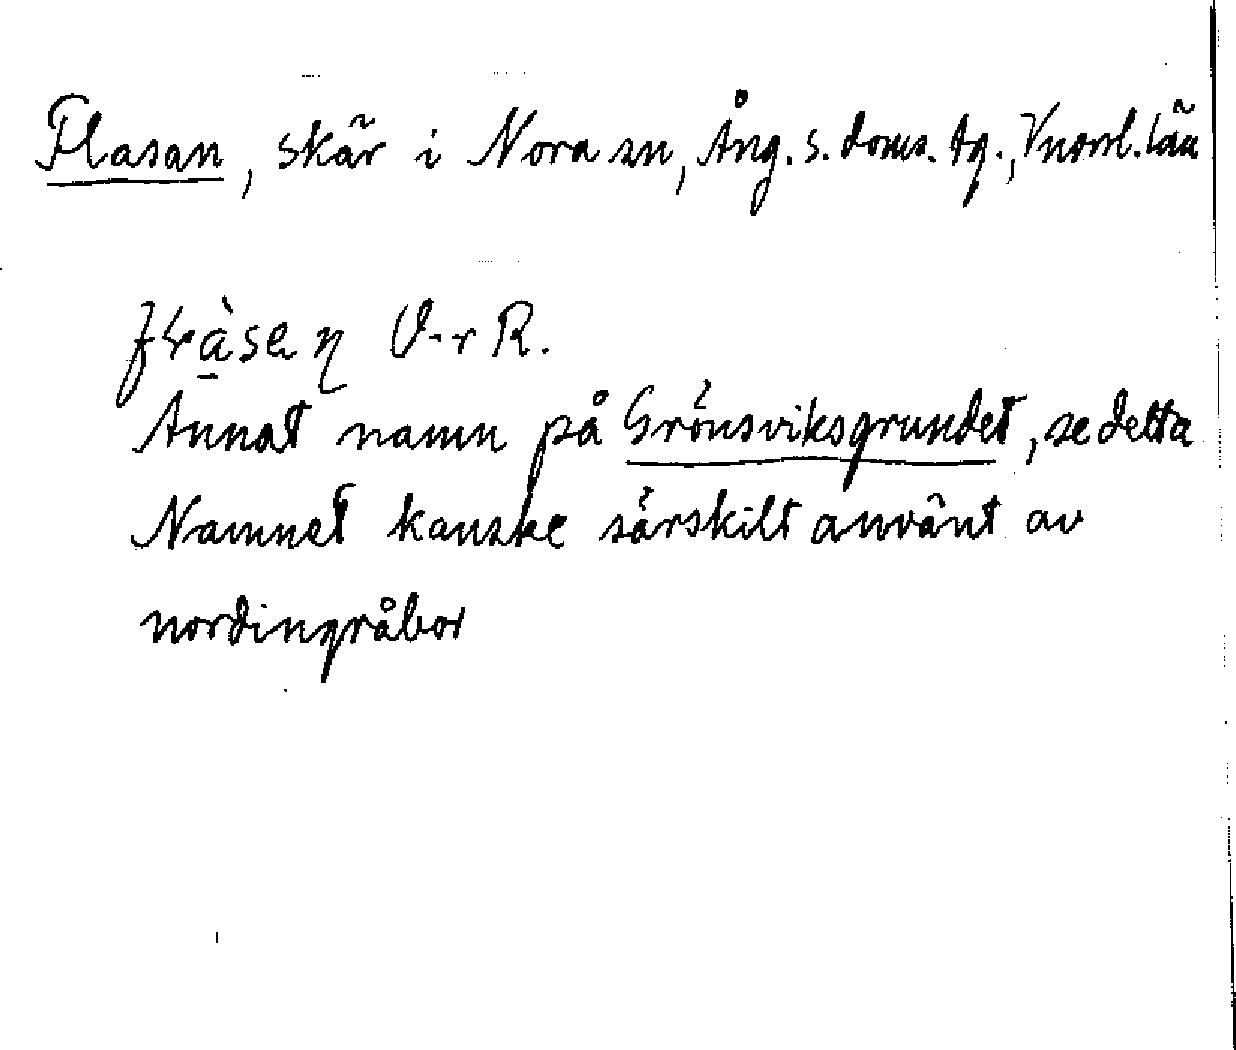 Flasan, skär i Nora sn, Ång. s. doms. tg., Vnorrl. län
O-r R.
Annat namn på Grönsviksgrundet, se detta
Namnet kanske särskilt använt av
nordingråbor